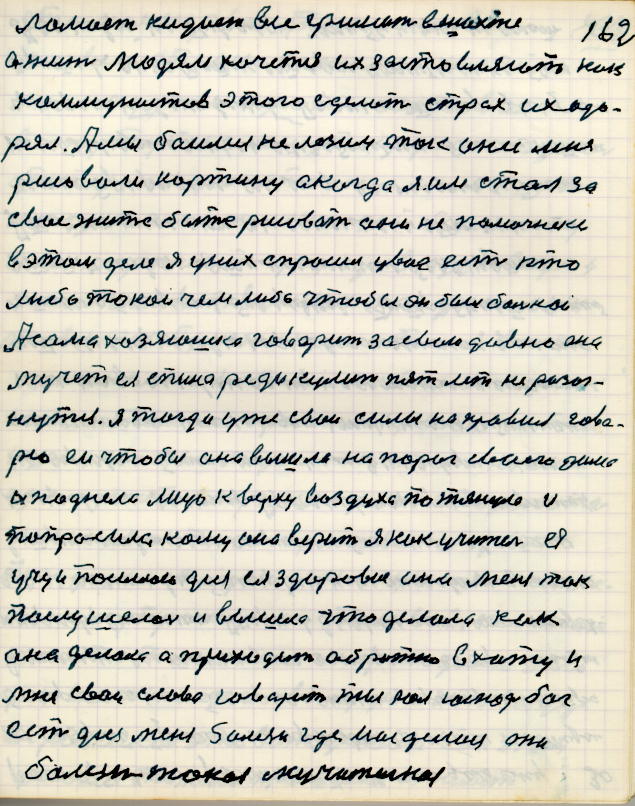 ломает кидает все гремит в шахте 162
а жит людям хочетия их заставляит как
коммунистов этого сделат страх их одо-
рял. А мы баили не лезим так они мня
рисовали картину а когда я им стал за
свое жите быте рисоват они не помочнеки
в этом деле я у них спросил увас ест кто
либо токой чем либо чтобы он был болной
А сама хозяюшка говарит за свои давно она
мучет ея спина редикулит пят лет не разог-
нутца. я тогда уже свои силы на правил гова-
рю еи чтобы она вышла на порог своего дома
а поднела лицо к верху воздуха потянула и
попросила кому она верит я как учител ея
учу и посилаю для ея здоровия она меня так
послушелас и вышла что делала как
она делала а приходит обратно в хату и
мне свои слова говарит ты нас господ бог
ест для меня болезн где мне делас она
болезн токая мучителная